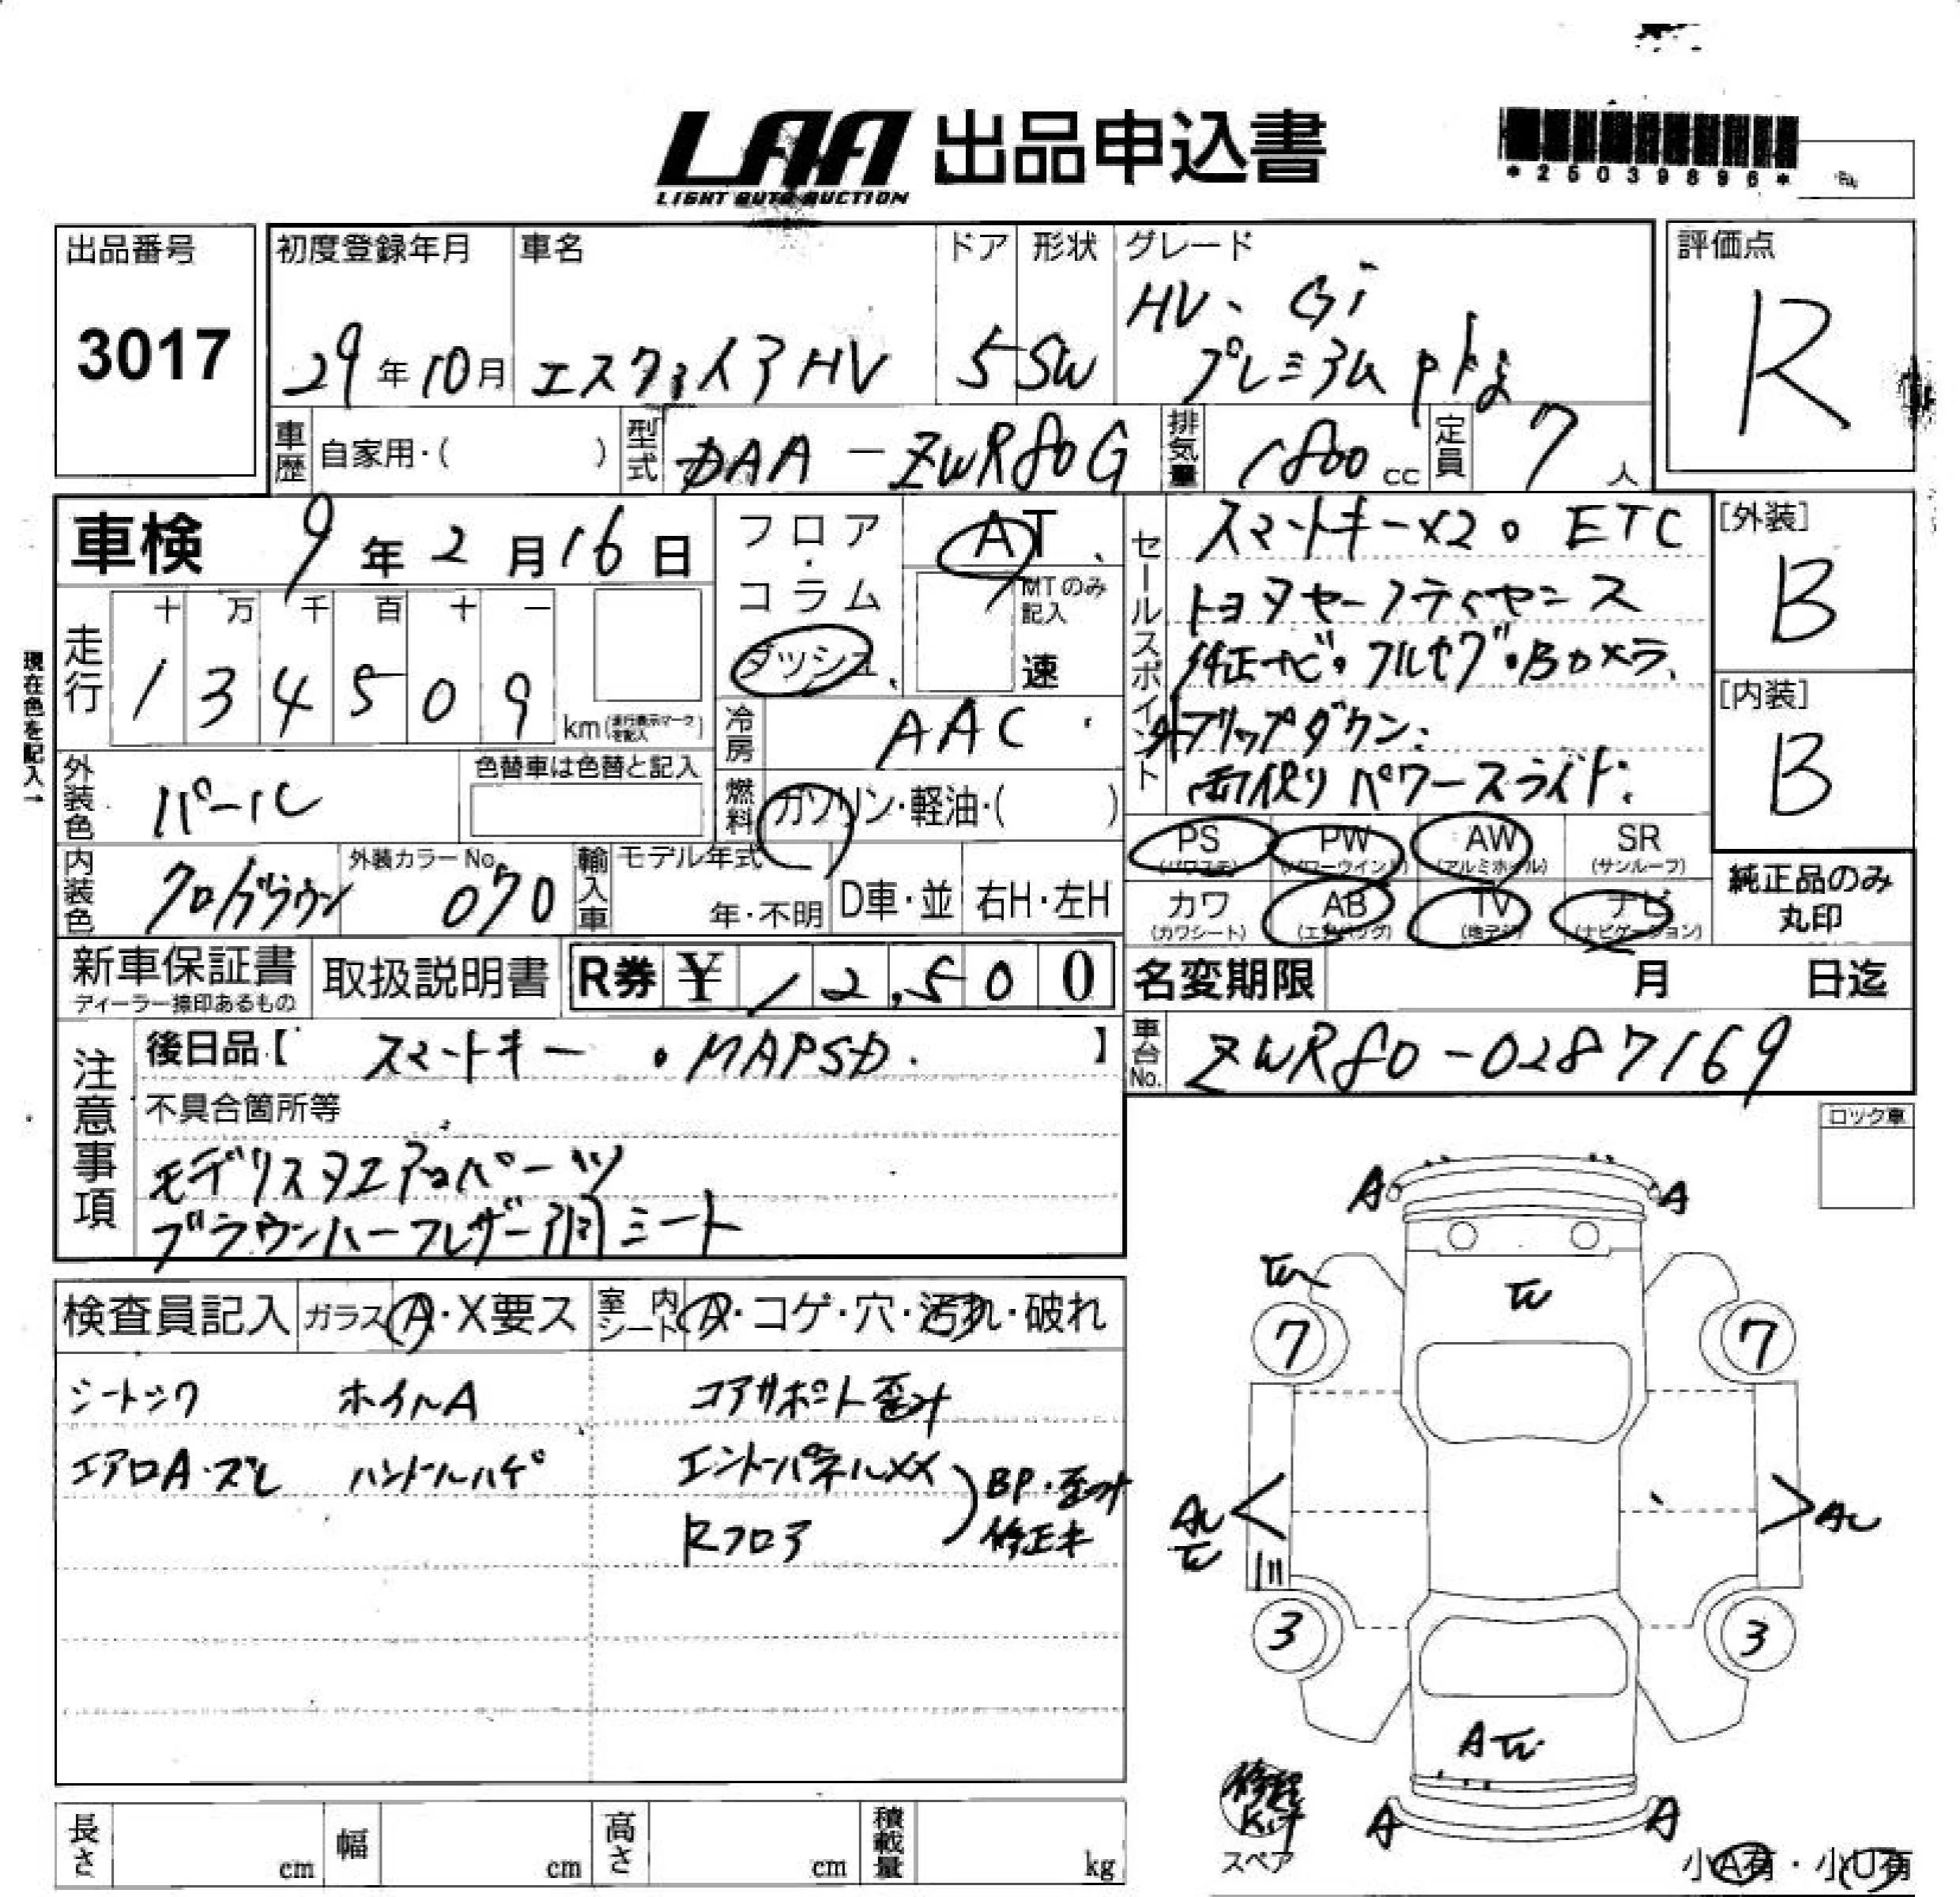 LAA 出品申込書
LIGHT AUTO AUCTION
*25039896*
出品番号
3017
初度登録年月
29年10月
車名
エスクァイアHV
ドア
5
形状
SW
グレード
HV、Gi
プレミアムpkg
評価点
R
車歴 自家用・( )
型式 DAA-ZWR80G
排気量 1800cc
定員 7人
車検 9年2月16日
フロア・コラム
ダッシュ
AT
MTのみ記入
速
走行
十万千百十一
134509
km(走行表示マークを記入)
現在色を記入→
冷房 AAC
外装色 パール
色替車は色替と記入
燃料 ガソリン・軽油・( )
内装色 クロ/ブラウン
外装カラーNo. 070
輸入車 モデル年式
年・不明
D車・並
右H・左H
セールスポイント
スマートキー×2。ETC
トヨタセーフティセンス
純正ナビ。フルセグ。Bカメラ
フリップダウン
両側パワースライド
[外装]
B
[内装]
B
PS (パワステ)
PW (パワーウインド)
AW (アルミホイル)
SR (サンルーフ)
カワ (カワシート)
AB (エアバッグ)
TV (地デジ)
ナビ (ナビゲーション)
純正品のみ丸印
新車保証書
ディーラー捺印あるもの
取扱説明書
R券 ¥ 12,500
名変期限 月 日迄
注意事項
後日品【 スマートキー 。MAPSD. 】
車台No. ZWR80-0287169
不具合箇所等
モデリスタエアロパーツ
ブラウンハーフレザー調シート
ロック車
検査員記入
ガラス A・X要ス
室内シート A・コゲ・穴・汚れ・破れ
シートシワ ホイルA コアサポート歪み
エアロA・ズレ ハンドルハゲ エンドパネルXX
Rフロア
BP・歪み
修正未
A A
7 7
AU
AU
3 3
A
A A
修理Kit
スペア
小A有・小U有
長さ cm 幅 cm 高さ cm 積載量 kg